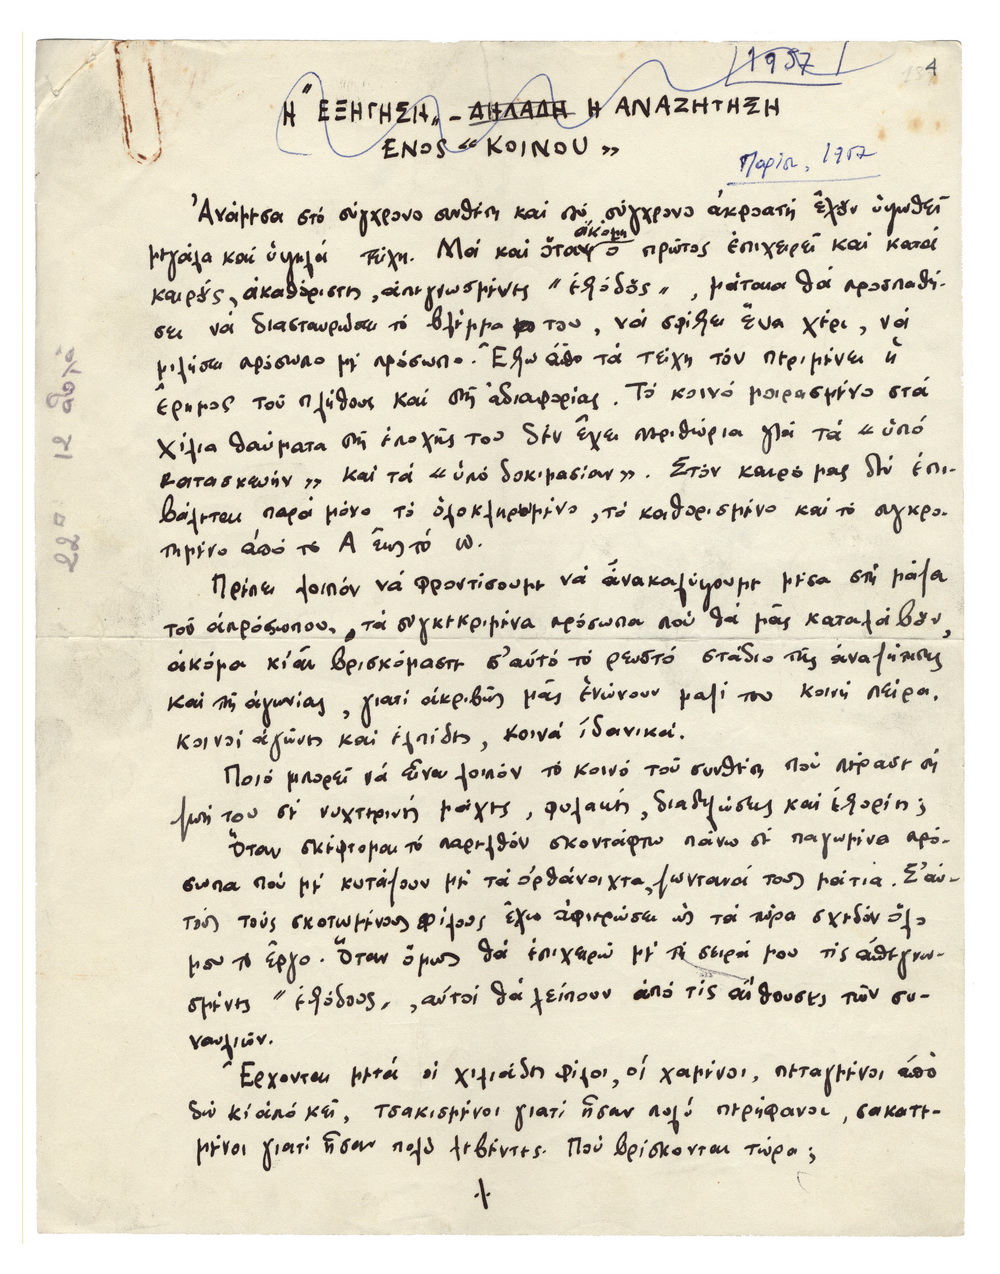 1957
134
Η "ΕΞΗΓΗΣΗ„ - ΔΗΛΑΔΗ Η ΑΝΑΖΗΤΗΣΗ
ΕΝΟΣ « ΚΟΙΝΟΥ »
Παρίσι, 1957
Ἀνάμεσα στό σύγχρονο συνθέτη καί στό σύγχρονο ἀκροατή ἔχουν ὑψωθεῖ
μεγάλα καί ὑψηλά τείχη. Μά καί ὅταν ἀκόμη ὁ πρῶτος ἐπιχειρεῖ κατά
καιρούς, ἀκαθόριστες, ἀπεγνωσμένες " ἐξόδους „ , μάταια θά προσπαθή-
σει νά διασταυρώσει τό βλέμμα του, νά σφίξει ἕνα χέρι, νά
μιλήσει πρόσωπο μέ πρόσωπο. Ἔξω ἀπό τά τείχη τόν περιμένει ἡ
ἔρημος τοῦ πλήθους καί τῆς ἀδιαφορίας. Τό κοινό μοιρασμένο στά
χίλια θαύματα τῆς ἐποχῆς του δέν ἔχει περιθώρια γιά τά « ὑπό
κατασκευήν » καί τά « ὑπό δοκιμασίαν ». Στόν καιρό μας δέν ἐπι-
βάλεται παρά μόνο τό ὁλοκληρωμένο, τό καθορισμένο καί τό συγκρο-
τημένο ἀπό τό Α ἕως τό ω.
Πρέπει λοιπόν νά φροντίσουμε νά ἀνακαλύψουμε μέσα στή μάζα
τοῦ ἀπρόσωπου, τά συγκεκριμένα πρόσωπα πού θά μᾶς καταλάβουν,
ἀκόμα κι ἄν βρισκόμαστε σ' αὐτό τό ρευστό στάδιο τῆς ἀναζήτησης
καί τῆς ἀγωνίας, γιατί ἀκριβῶς μᾶς ἑνώνουν μαζί του κοινή πείρα,
κοινοί ἀγῶνες καί ἐλπίδες, κοινά ἰδανικά.
Ποιό μπορεῖ νά εἶναι λοιπόν τό κοινό τοῦ συνθέτη πού πέρασε τή
ζωή του σέ νυχτερινές μάχες, φυλακές, διαδηλώσεις καί ἐξορίες;
Ὅταν σκέφτομαι τό παρελθόν σκοντάφτω πάνω σέ παγωμένα πρό-
σωπα πού μέ κυτάζουν μέ τά ὀρθάνοιχτα, ζωντανά τους μάτια. Σ' αὐ-
τούς τούς σκοτωμένους φίλους ἔχω ἀφιερώσει ὡς τά τώρα σχεδόν ὅλο
μου τό ἔργο. Ὅταν ὅμως θά ἐπιχειρῶ μέ τή σειρά μου τίς ἀπεγνω-
σμένες " ἐξόδους „, αὐτοί θά λείπουν ἀπό τίς αἴθουσες τῶν συ-
ναυλιῶν.
Ἔρχονται μετά οἱ χιλιάδες φίλοι, οἱ χαμένοι, πεταγμένοι ἀπό
δῶ κι ἀπό κεῖ, τσακισμένοι γιατί ἦσαν πολύ περήφανοι, σακατε-
μένοι γιατί ἦσαν πολύ λεβέντες. Ποῦ βρίσκονται τώρα;